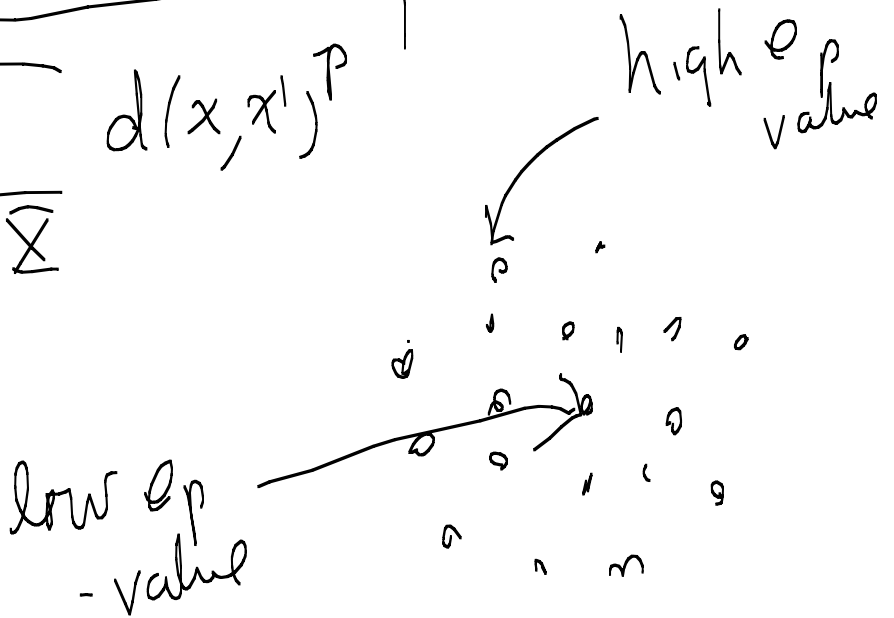 d(x, x')^p
high e_p
value
X
low e_p
- value